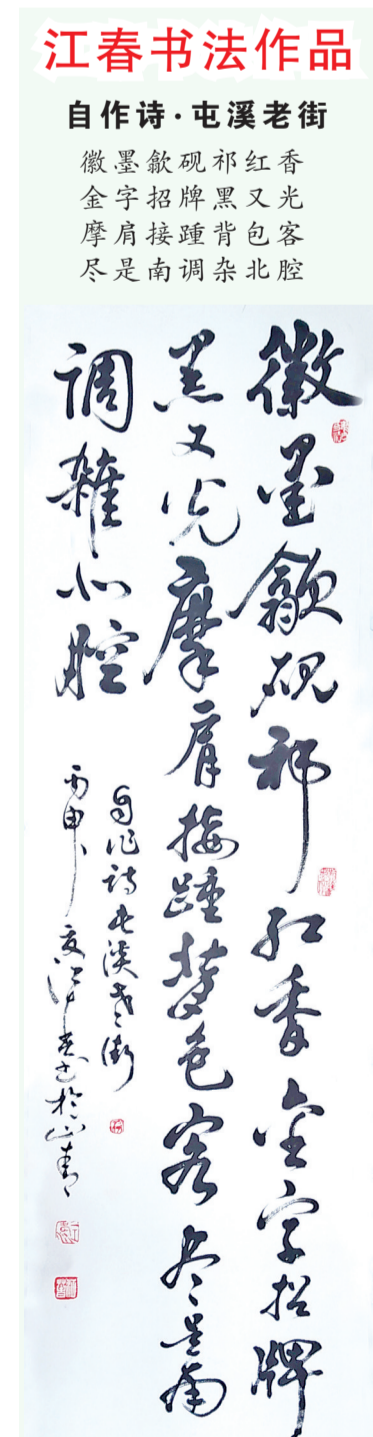 江春书法作品
自作诗·屯溪老街
徽墨歙砚祁红香
金字招牌黑又光
摩肩接踵背包客
尽是南调杂北腔
徽墨歙砚祁红香金字招牌
黑又光摩肩接踵背包客尽是南
调雜北腔
自作诗屯溪老街
丙申夏江春书於山青